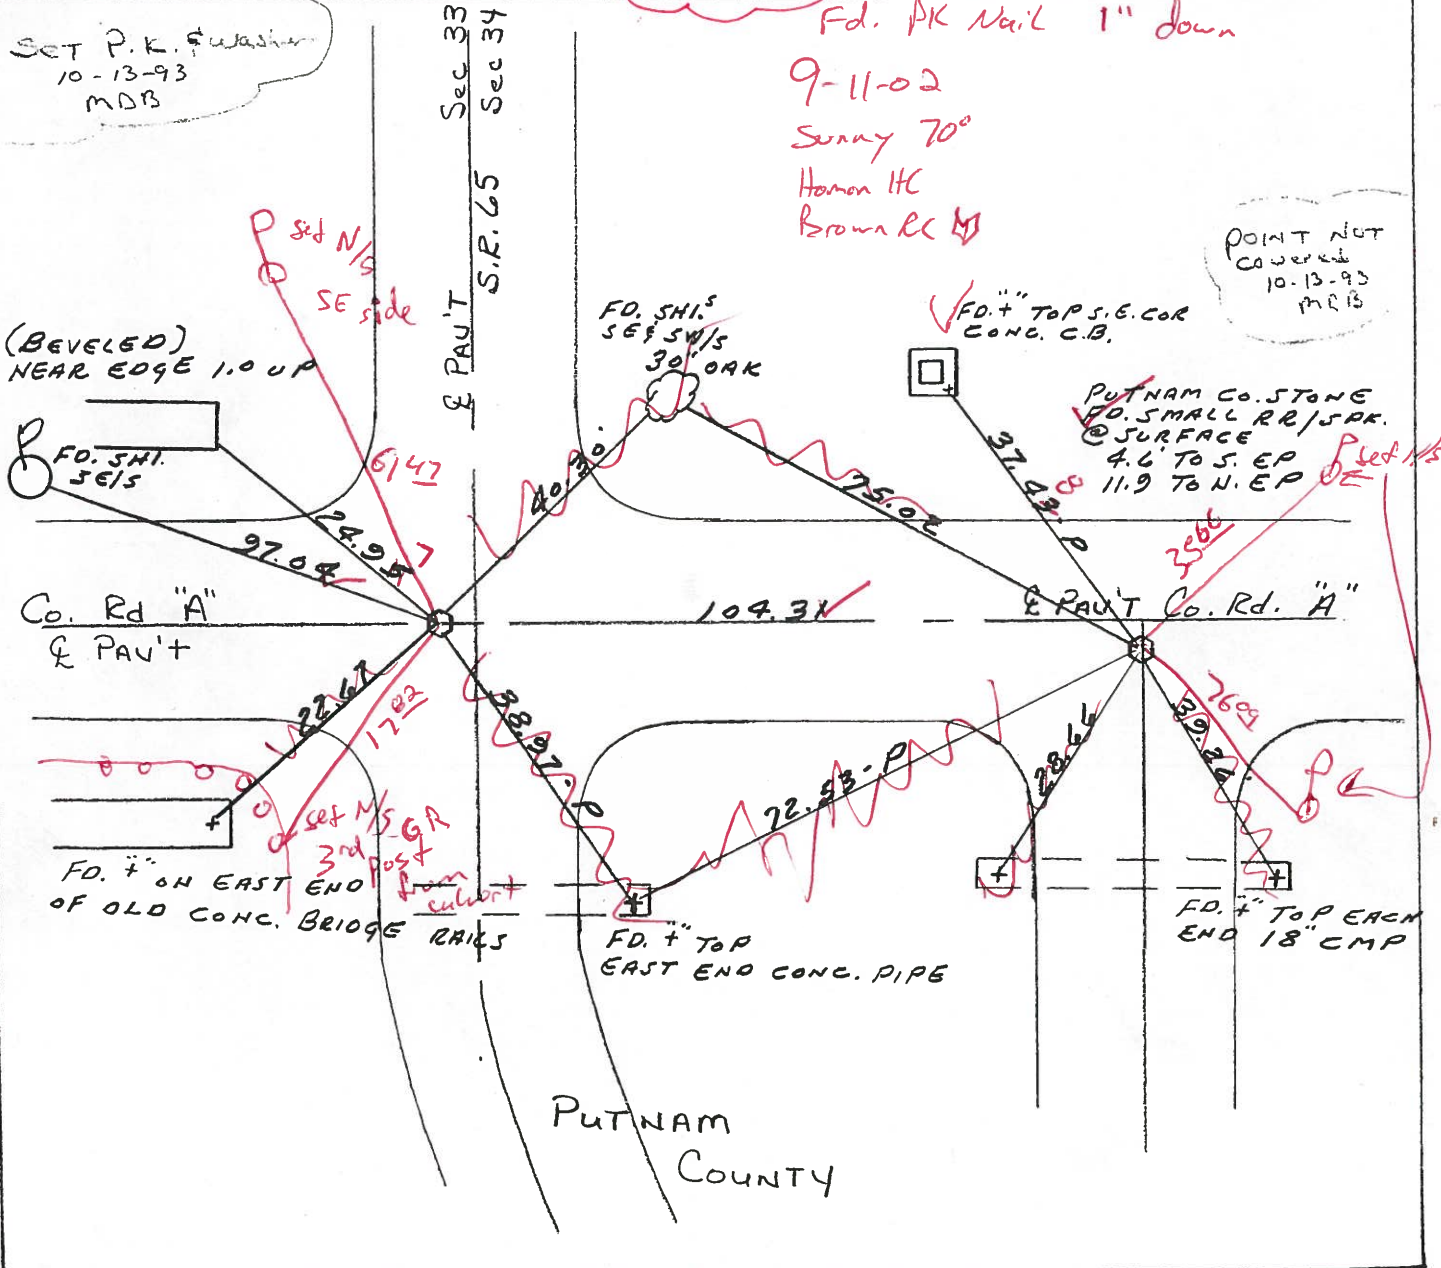 SET P.K. & Washer
10-13-93
MDB
Sec 33
Sec 34
S.R. 65
℄ PAV'T
Fd. PK Nail 1" down
9-11-02
Sunny 70°
Homan HC
Brown RC
POINT NOT
COVERED
10-13-93
MDB
P set N/S
SE side
(BEVELED)
NEAR EDGE 1.0 UP
FD. SHI.
SE/S
FD. SHI.S
SE & SW/S
30" OAK
FD. "+" TOP S.E. COR
CONC. C.B.
PUTNAM CO. STONE
FD. SMALL RR/SPK.
@ SURFACE
4.6' TO S. EP
11.9 TO N. EP
P set N/S
61 47
24.95
7
97.04
40.30
75.02
37.43 - P
35 66
Co. Rd "A"
℄ PAV'T
104.31
℄ PAV'T Co. Rd. "A"
22.67
17 82
38.97 - P
72.53 - P
28.66
39.26
76 09
P
set N/S GR
3rd post
from
culvert
FD. "+" ON EAST END
OF OLD CONC. BRIDGE RAILS
FD. "+" TOP
EAST END CONC. PIPE
FD. "+" TOP EACH
END 18" CMP
PUTNAM
COUNTY